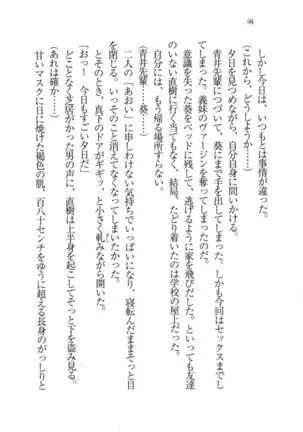 94
しかし今日は、いつもとは事情が違った。
(これから、どうしようか……)
夕日を見つめながら、自分自身に問いかける。
青井先輩につづいて、葵にまで手を出してしまった。しかも今回はセックスまでし
てしまった。義妹のヴァージンを奪ってしまったのだ。
意識を失った葵をベッドに残して、逃げるように家を飛びだした。といっても友達
のいない直樹に行く当てもなく、結局、たどり着いたのは学校の屋上だった。
自分には、もう帰る場所すらない。
(青井先輩……葵……)
二人の「あおい」に申しわけない気持ちでいっぱいになり、寝転んだままそっと目
を閉じる。いっそのこと消えてなくなってしまいたかった。
とそのとき、真下のドアがギギッ、と小さく軋みながら開いた。
「おっ! 今日もすごい夕日だ」
どことなく芝居がかった男の声に、直樹は上半身を起こしてそっと下を盗み見る。
(あれは確か……)
甘いマスクに日に焼けた褐色の肌、百八十センチをゆうに超える長身のがっしりと